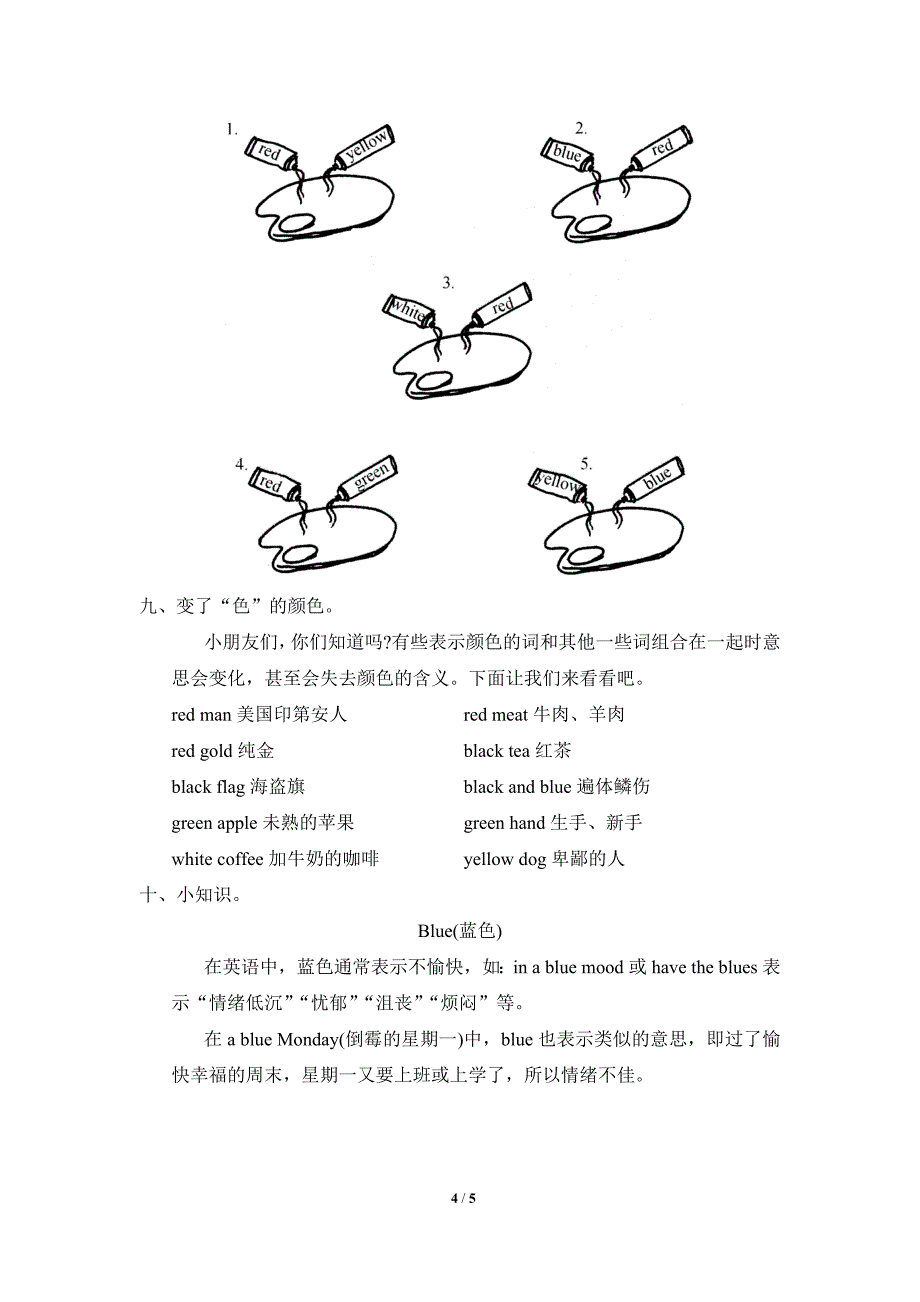 1.
red
yellow
2.
blue
red
3.
white
red
4.
red
green
5.
yellow
blue
九、变了“色”的颜色。
小朋友们,你们知道吗?有些表示颜色的词和其他一些词组合在一起时意
思会变化，甚至会失去颜色的含义。下面让我们来看看吧。
red man 美国印第安人 red meat 牛肉、羊肉
red gold 纯金 black tea 红茶
black flag 海盗旗 black and blue 遍体鳞伤
green apple 未熟的苹果 green hand 生手、新手
white coffee 加牛奶的咖啡 yellow dog 卑鄙的人
十、小知识。
Blue(蓝色)
在英语中，蓝色通常表示不愉快，如：in a blue mood 或 have the blues 表
示“情绪低沉”“忧郁”“沮丧”“烦闷”等。
在 a blue Monday(倒霉的星期一)中，blue 也表示类似的意思，即过了愉
快幸福的周末，星期一又要上班或上学了，所以情绪不佳。
4 / 5